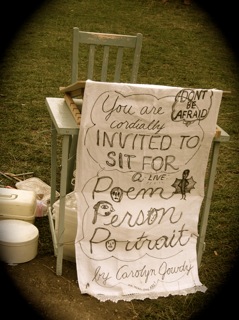 DON'T
BE
AFRAID
You are
cordially
INVITED TO
SIT FOR
a LIVE
Poem
Person
Portrait
by Carolyn Gowdy